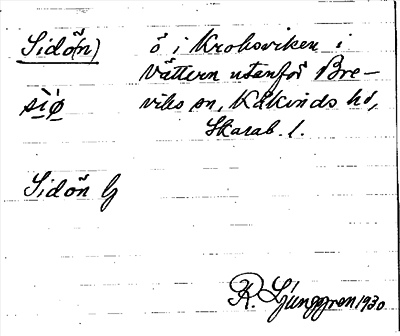 Sidö(n) ö i Kroksviken i
Vättern utanför Bre-
sìø̀ viks sn, Kåkinds hd,
Skarab. l.
Sidön G
R. Ljunggren 1930